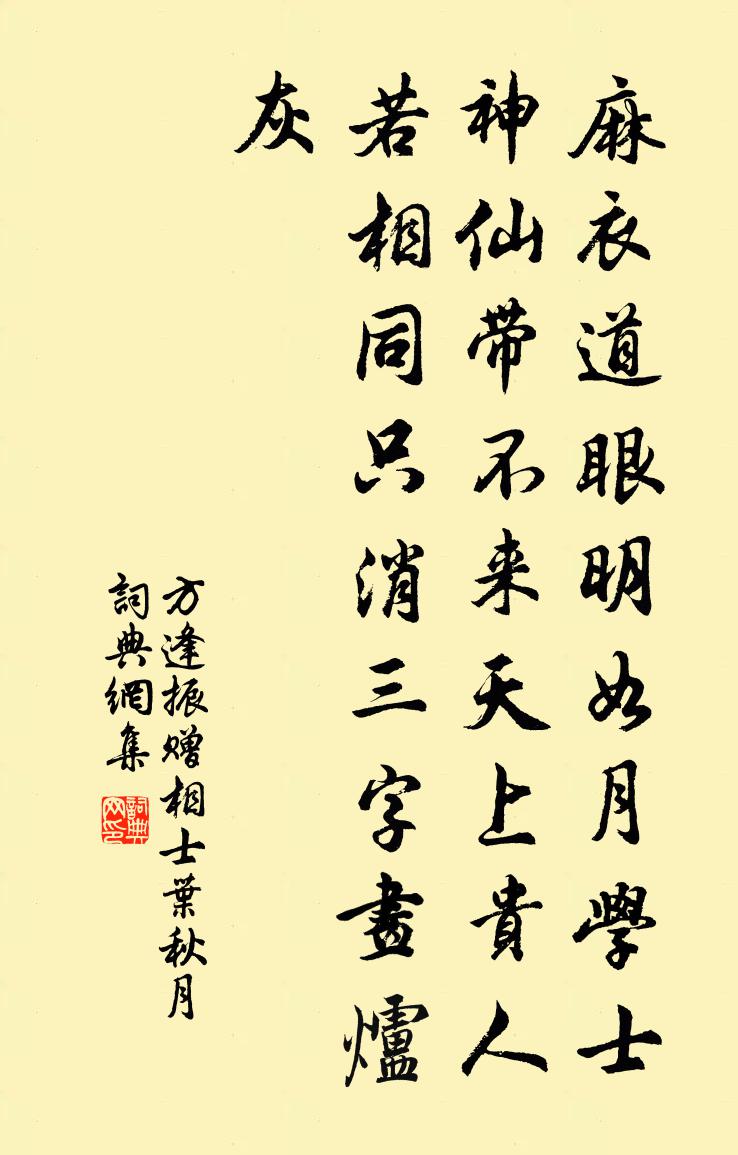 麻衣道眼明如月學士
神仙帶不来天上貴人
若相同只消三字畫爐
灰
方逢振贈相士葉秋月
詞典網集
詞典网印